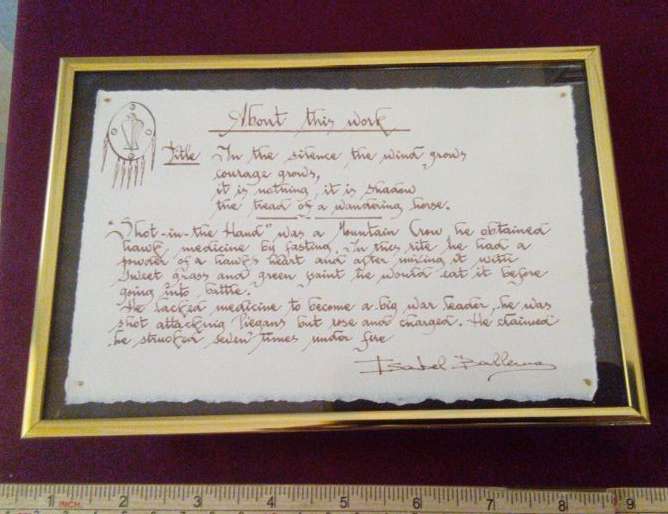 About this work
Title In the silence the wind grows
courage grows,
it is nothing, it is shadow
the tread of a wandering horse.
"Shot-in-the Hand" was a Mountain Crow he obtained
hawk medicine by fasting. In this rite he had a
powder of a hawk's heart and after mixing it with
sweet grass and green paint he would eat it before
going into battle.
He lacked medicine to become a big war leader, he was
shot attacking Piegans but rose and charged. He claimed
he strucked seven times under fire
Isabel
1 INCH 2 3 4 5 6 7 8 9